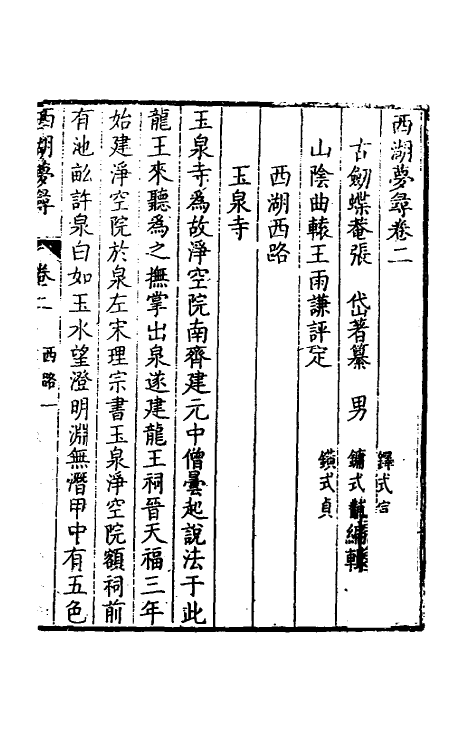 西湖夢尋卷二
古劒蝶菴張 岱著纂 男
鐸式
鏞式 編輯
鐄式貞
山陰曲轅王雨謙評定
西湖西路
玉泉寺
玉泉寺爲故淨空院南齊建元中僧曇起說法于此
龍王來聽爲之撫掌出泉遂建龍王祠晉天福三年
始建淨空院於泉左宋理宗書玉泉淨空院額祠前
有池畝許泉白如玉水望澄明淵無潛甲中有五色
西湖夢尋 卷二 西路 一